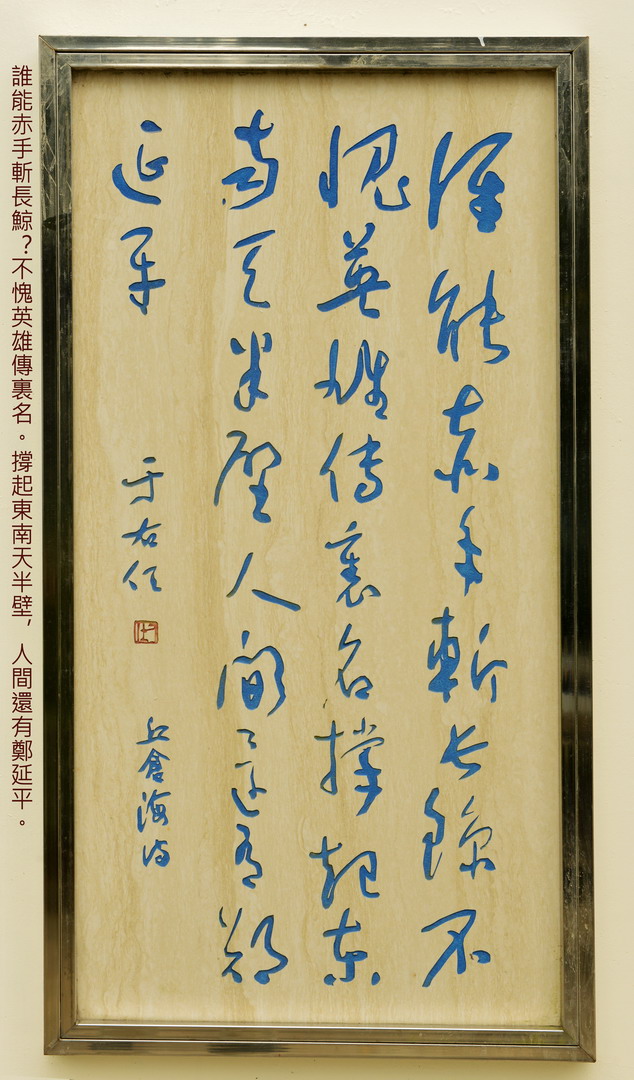 誰能赤手斬長鯨不
愧英雄傳裏名撐起東
南天半壁人間還有鄭
延平
于右任
丘倉海詩
誰能赤手斬長鯨？不愧英雄傳裏名。撐起東南天半壁，人間還有鄭延平。